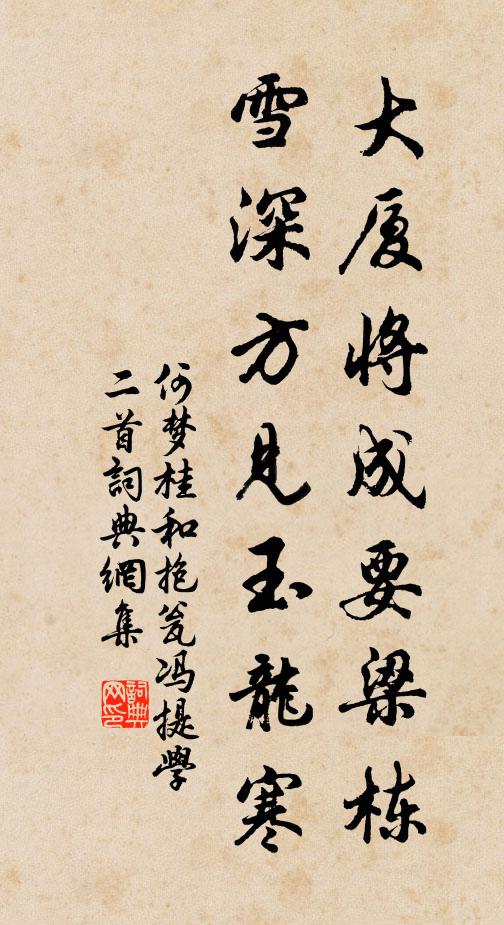 大厦将成要梁栋
雪深方见玉龍寒
何梦桂和抱瓮冯提學
二首詞典網集
詞典网印